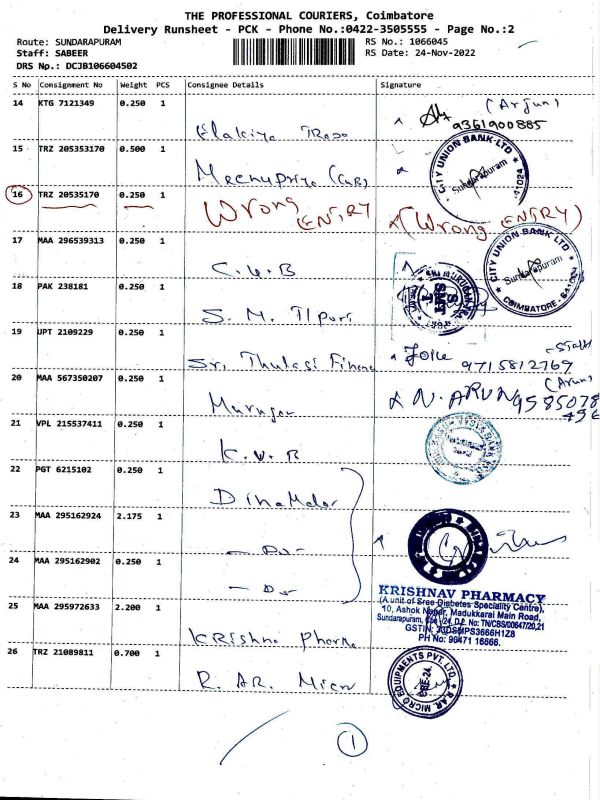 THE PROFESSIONAL COURIERS, Coimbatore
Delivery Runsheet - PCK - Phone No.:0422-3505555 - Page No.:2
Route: SUNDARAPURAM
RS No.: 1066045
Staff: SABEER
RS Date: 24-Nov-2022
DRS Np.: DCJB106604502
S No Consignment No Weight PCS Consignee Details Signature
14 KTG 7121349 0.250 1 (Arjun)
9361900885
15 TRZ 205353170 0.500 1 CITY UNION BANK LTD Sundarapuram 641024
16 TRZ 20535170 0.250 1 Wrong ENTRY (Wrong ENTRY)
17 MAA 296539313 0.250 1 C.U.B CITY UNION BANK LTD Sundarapuram COIMBATORE
18 PAK 238181 0.250 1 S. M.
19 UPT 2109229 0.250 1 Sri Thulasi 9715812769
20 MAA 567350207 0.250 1 Murugan N. ARUN (Arun)
21 VPL 215537411 0.250 1 K.V.B
22 PGT 6215102 0.250 1 DinaMalar
23 MAA 295162924 2.175 1
24 MAA 295162902 0.250 1
25 MAA 295972633 2.200 1 Krishna
KRISHNAV PHARMACY
(A unit of Sree Diabetes Speciality Centre),
10, Ashok Nagar, Madukkarai Main Road,
Sundarapuram,
PH No: 98471 16666.
26 TRZ 21089811 0.700 1 R. AR. Micro R.AR. MICRO EQUIPMENTS PVT. LTD. CBE-24.
1